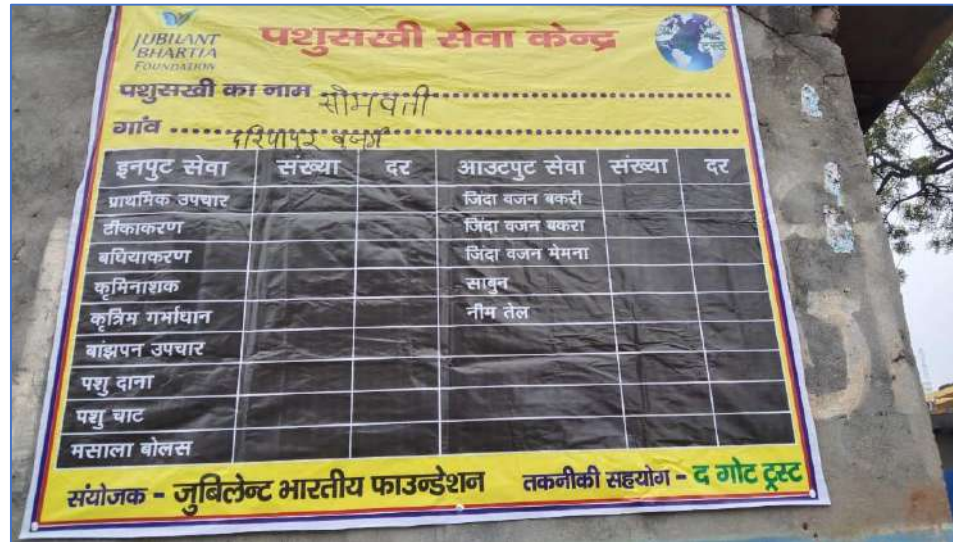 JUBILANT
BHARTIA
FOUNDATION
पशुसखी सेवा केन्द्र
पशुसखी का नाम सोमवती
गांव
इनपुट सेवा संख्या दर आउटपुट सेवा संख्या दर
प्राथमिक उपचार जिंदा वजन बकरी
टीकाकरण जिंदा वजन बकरा
बधियाकरण जिंदा वजन मेमना
कृमिनाशक साबुन
कृत्रिम गर्भाधान नीम तेल
बांझपन उपचार
पशु दाना
पशु चाट
मसाला बोलस
संयोजक - जुबिलेन्ट भारतीय फाउन्डेशन तकनीकी सहयोग - द गोट ट्रस्ट